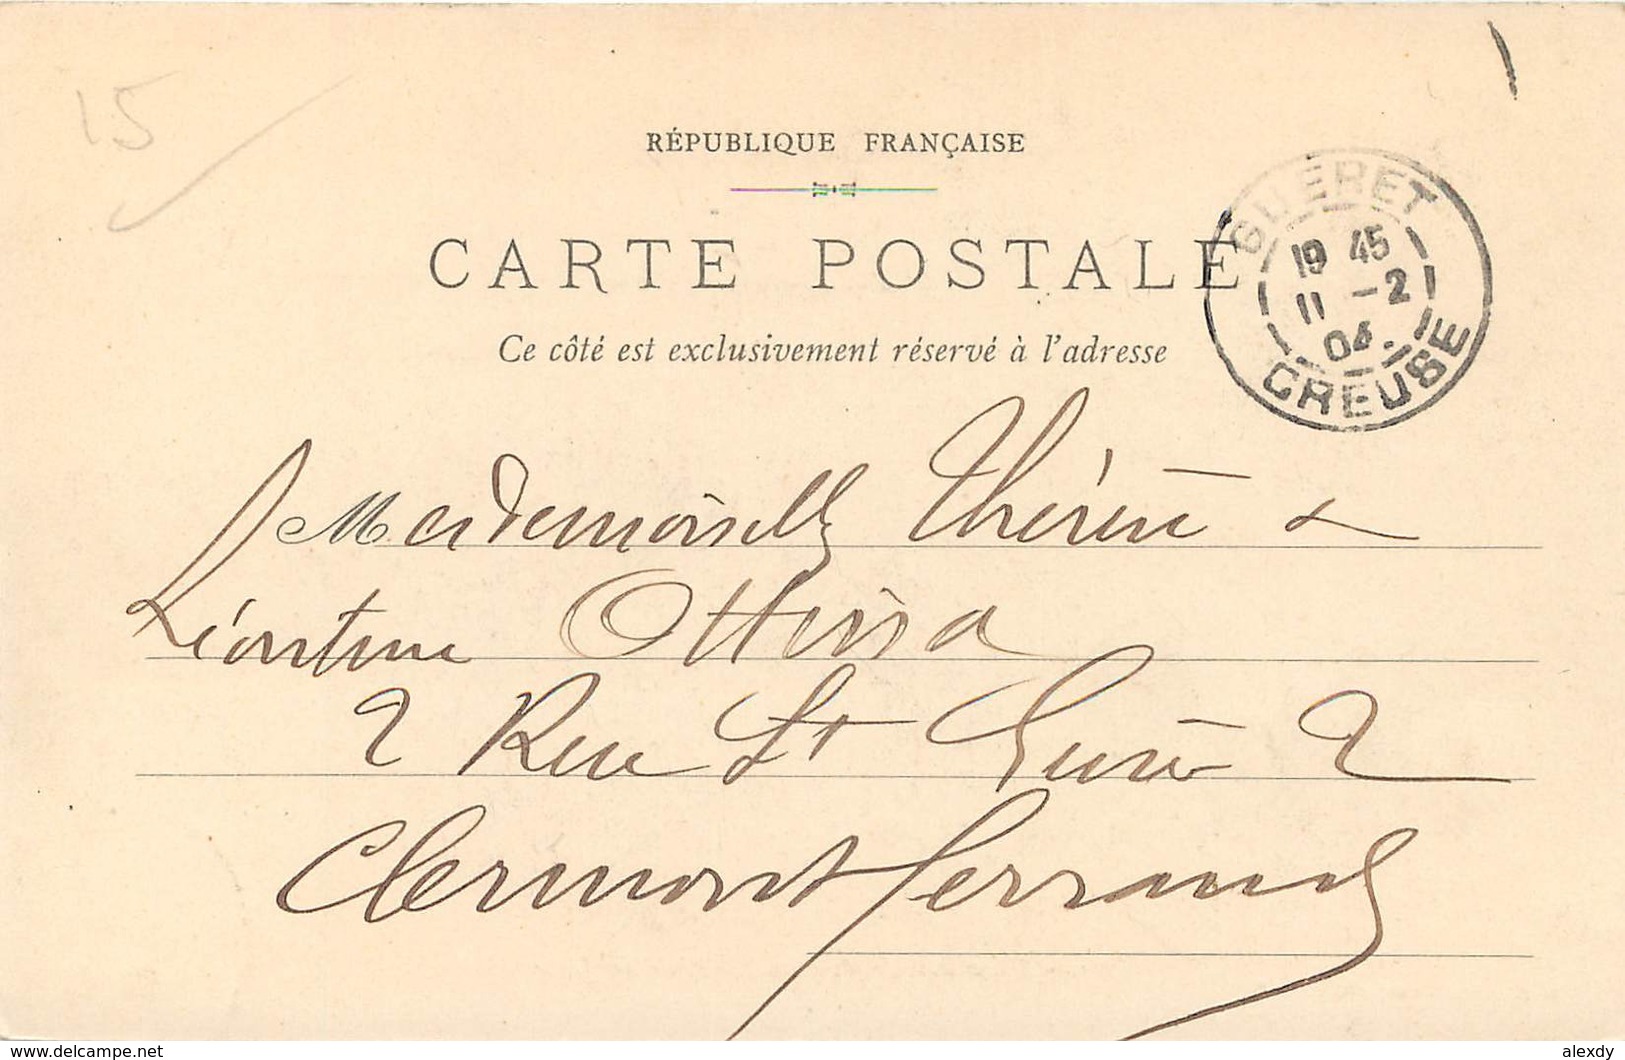 15
RÉPUBLIQUE FRANÇAISE
CARTE POSTALE
Ce côté est exclusivement réservé à l'adresse
GUERET
19 45
11 -2
04
CREUSE
Mademoiselle Thérèse &
Léontine
2 Rue St 2
Clermont Ferrand
www.delcampe.net
alexdy